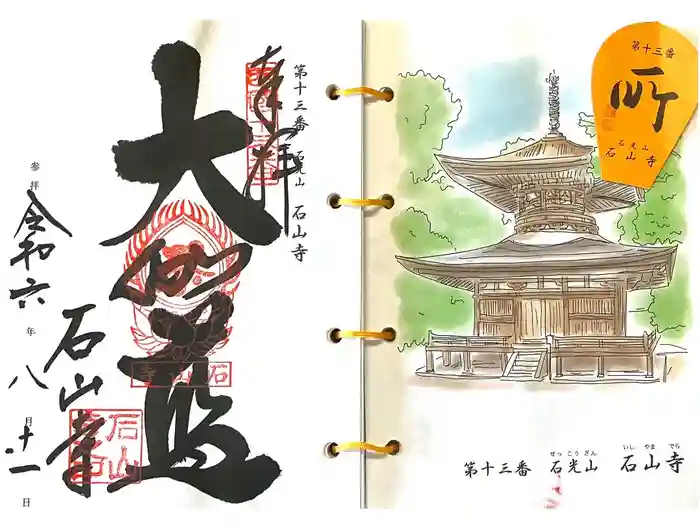 第十三番 石光山 石山寺
奉拝
大伽藍
石山寺
石山寺
参拝 令和六年八月十一日
第十三番
石光山
石山寺
せっこうざん いしやまでら
第十三番 石光山 石山寺